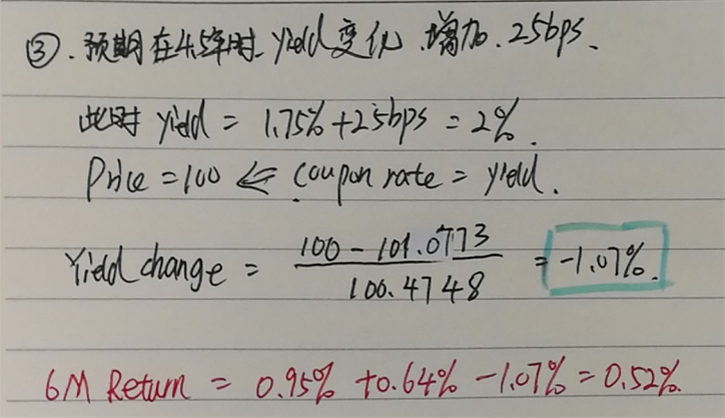 ③. 预期在4.5年时 yield 变化 增加. 25bps.
此时 yield = 1.75% + 25bps = 2%.
Price = 100 ⇐ coupon rate = yield.
Yield change = (100 - 101.0773) / 100.4748 = -1.07%.
6M Return = 0.95% + 0.64% - 1.07% = 0.52%.